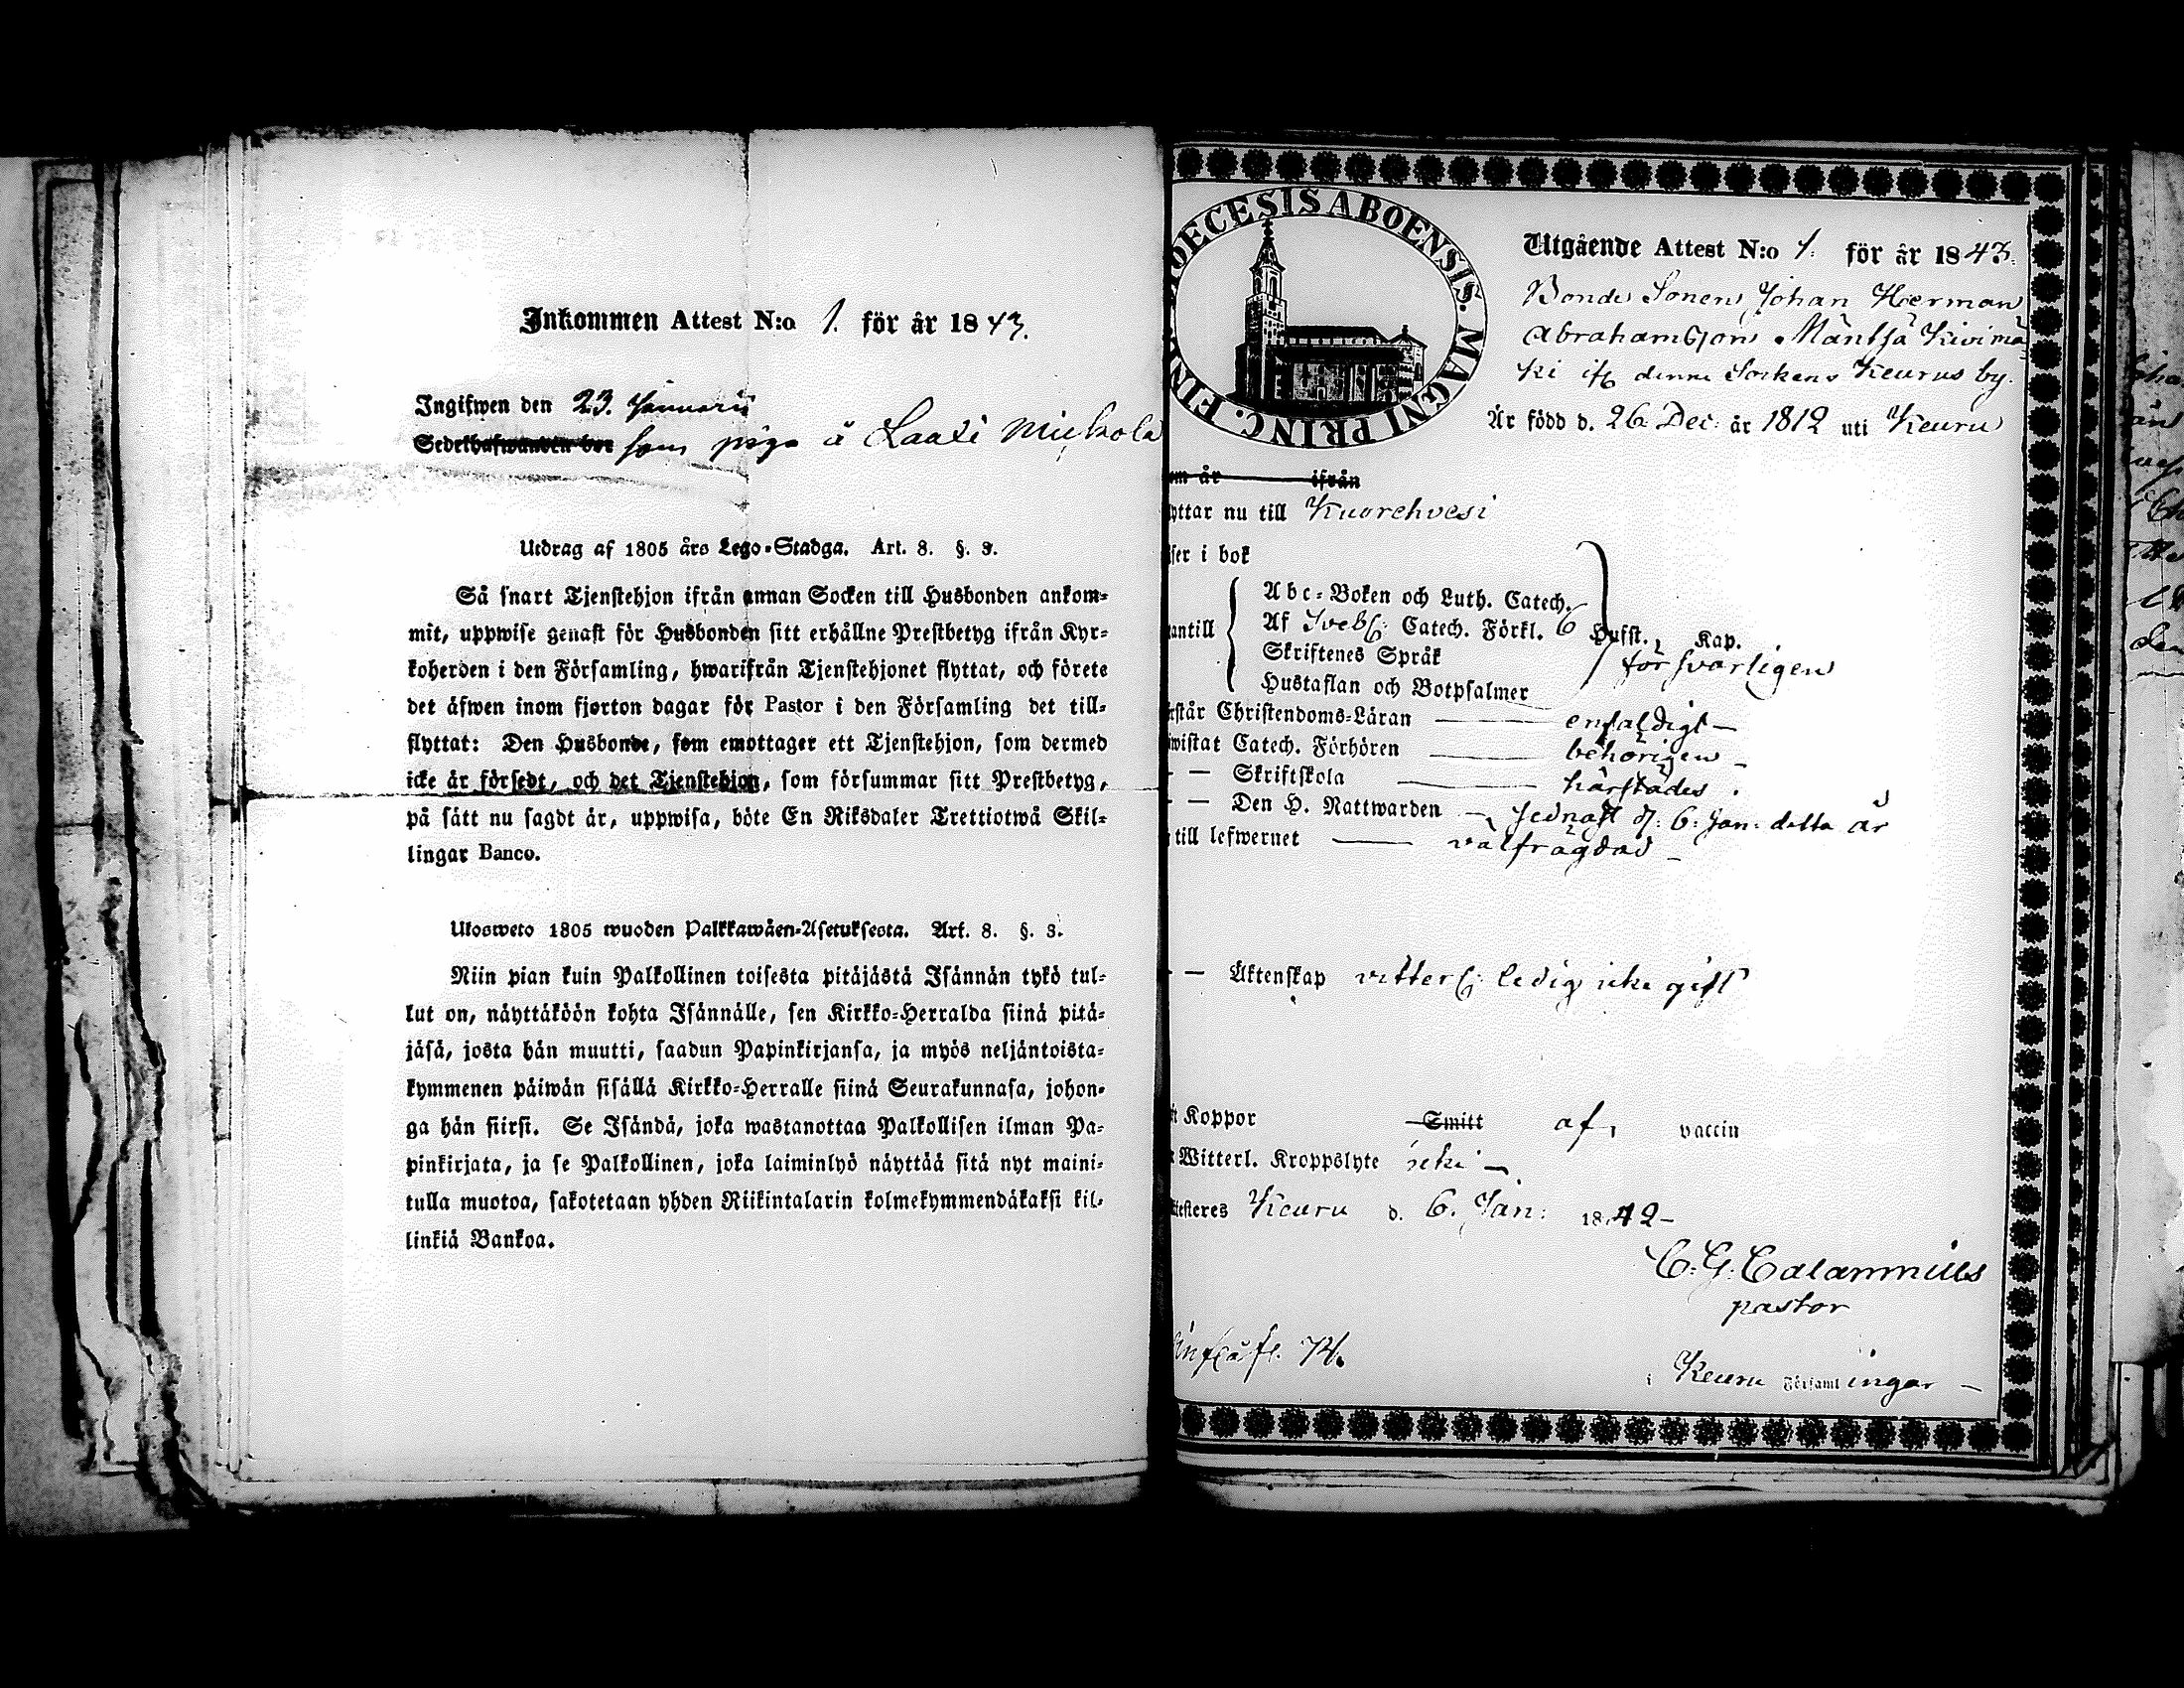 Inkommen Attest N:o 1. för år 1843.
Ingifwen den 23. Januarii
Sedelhafwanden bor som piga å Laasi Mickola
Utdrag af 1805 års Lego-Stadga. Art. 8. §. 3.
Så snart Tjenstehjon ifrån annan Socken till Husbonden ankom-
mit, uppwise genast för Husbonden sitt erhållne Prestbetyg ifrån Kyr-
koherden i den Församling, hwarifrån Tjenstehjonet flyttat, och förete
det äfwen inom fjorton dagar för Pastor i den Församling det till-
flyttat: Den Husbonde, som emottager ett Tjenstehjon, som dermed
icke är försedt, och det Tjenstehjon, som försummar sitt Prestbetyg,
på sätt nu sagdt är, uppwisa, böte En Riksdaler Trettiotwå Skil-
lingar Banco.
Ulosweto 1805 wuoden Palkkawäen-Asetuksesta. Art. 8. §. 3.
Niin pian kuin Palkollinen toisesta pitäjästä Isännän tykö tul-
lut on, näyttäköön kohta Isännälle, sen Kirkko-Herralda siinä pitä-
jäsä, josta hän muutti, saadun Papinkirjansa, ja myös neljäntoista-
kymmenen päiwän sisällä Kirkko-Herralle siinä Seurakunnasa, johon-
ga hän siirsi. Se Isändä, joka wastanottaa Palkollisen ilman Pa-
pinkirjata, ja se Palkollinen, joka laiminlyö näyttää sitä nyt maini-
tulla muotoa, sakotetaan yhden Riikintalarin kolmekymmendäkaksi kil-
linkiä Bankoa.
DIOECESIS ABOENSIS. MAGNI PRINC. FIN
Utgående Attest N:o 1. för år 1843.
Bonde Sonen Johan Herman
Abrahamsson Mäntsä Kivimä
ki ifr denne Sockens Keurus by.
Är född d. 26. Dec: år 1812 uti Keuru
om år ifrån
yttar nu till Kuorehvesi
ser i bok
antill
Abc-Boken och Luth. Catech.
Af Svebs: Catech. Förkl. 6 Hufst. Kap.
Skriftenes Språk försvarligen
Hustaflan och Botpsalmer
rstår Christendoms-Läran enfaldigt
wistat Catech. Förhören behörigen
Skriftskola härstädes.
Den H. Nattwarden sednast d: 6: Jan: detta år
till lefwernet välfrägdad
Äktenskap vitterl: ledig icke gift
t Koppor Smitt af vaccin
Witterl. Kroppslyte icke
testeres Keuru d. 6. Jan: 1842
C. G. Calamnius
pastor
i Keuru Församl ingar